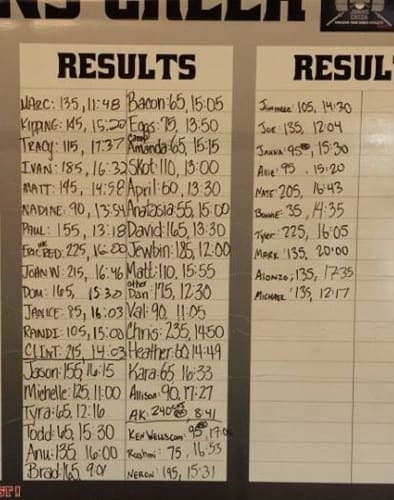 NS CREEK
RESULTS
MARC: 135, 11:48
KIPPING: 145, 15:20
TRACY: 115, 17:37
IVAN: 185, 16:32
MATT: 145, 14:58
NADINE: 90, 13:54
PAUL: 155, 13:18
ERIC THE RED: 225, 16:00
JOHN W: 215, 16:46
DOM: 165, 15:30
JANICE: 85, 16:03
RANDI: 105, 15:00
CLINT: 215, 14:03
Jason: 155, 16:15
Michelle: 125, 11:00
Tyra: 65, 12:16
Todd: 65, 15:30
Anu: 135, 16:00
Brad: 165, 9:01
Bacon: 65, 15:05
Eggs: 75, 13:50
Camp Amanda: 65, 15:15
Skot: 110, 13:00
April: 60, 13:30
Anatasia: 55, 15:00
David: 165, 13:30
Jewbin: 185, 12:00
Matt: 110, 15:55
other Dan: 175, 12:30
Val: 90, 11:05
Chris: 235, 14:50
Heather: 60 14:49
Kara: 65 16:33
Allison: 90, 17:27
AK: 240 8:41
KEN 95
75, 16:53
195, 15:31
RESUL
105, 14:30
JOE: 135, 12:04
95, 15:30
Allie: 95, 15:20
NATE: 205, 16:43
35, 14:35
Tyler: 225, 16:05
MARK: 135, 20:00
ALONZO: 135, 17:35
MICHAEL: 135, 12:17
ST!